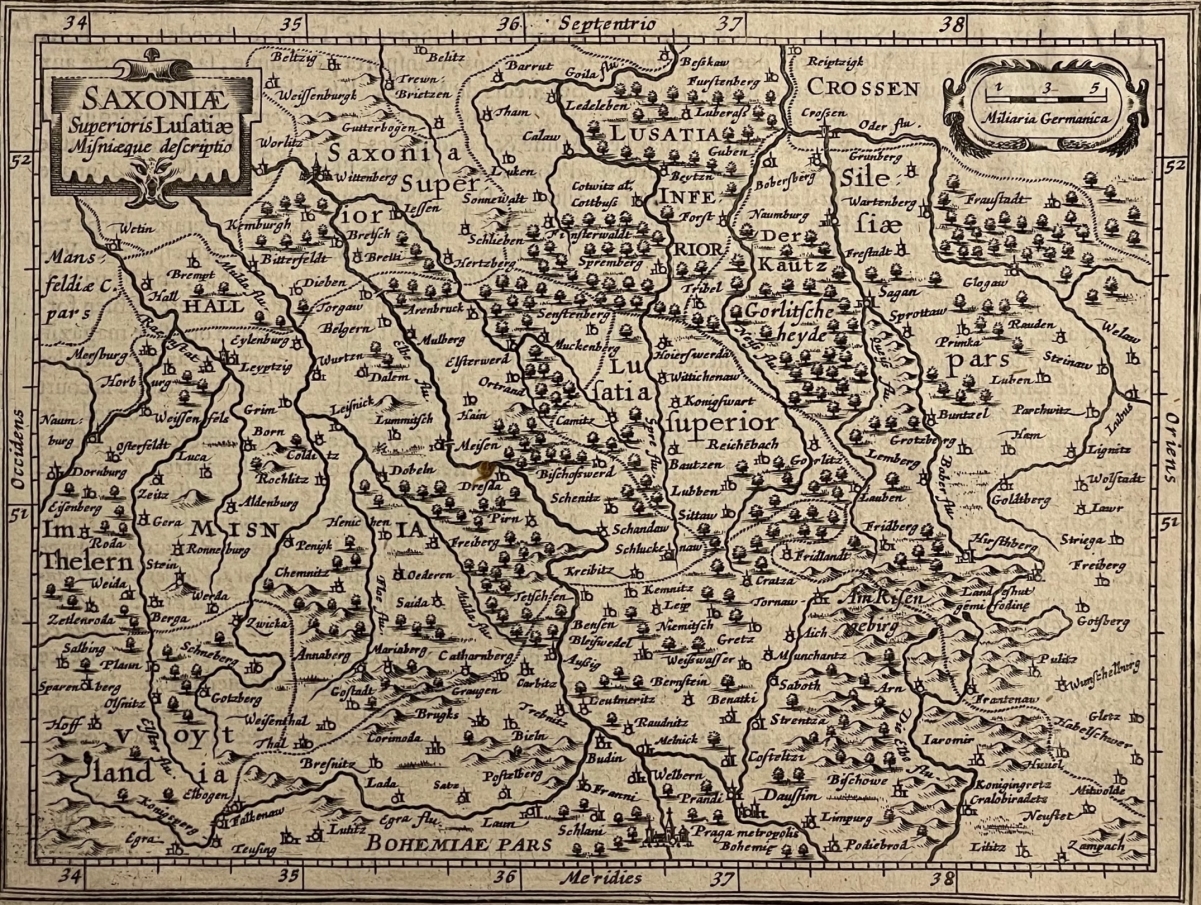 34 35 36 Septentrio 37 38
SAXONIÆ
Superioris Lusatiæ
Misniæque descriptio
1 3 5
Miliaria Germanica
Beltzig
Belitz
Barrut
Goila flu
Besskaw
Reiptzigk
CROSSEN
Weissenburgk
Trewn
Brietzen
Furstenberg
Ledeleben
Luberass
Crossen
Oder flu.
Tham
Gutterbogen
Calaw
LUSATIA
Guben
Grunberg
52
52
Worlitz
Wittenberg
Saxonia
Super
ior
Luken
Cotwitz al.
Cottbuss
Beytzn
INFE
RIOR
Bobersberg
Sile
siæ
pars
Wartenberg
Fraustadt
Lessen
Sonnewalt
Forst
Naumburg
Der
Kautz
Wetin
Kemburgh
Bretsch
Schlieben
Finsterwaldt
Frestadt
Mans
feldiæ C.
pars
Bitterfeldt
Bretti
Hertzberg
Spremberg
Brempt
Mulda flu.
Dieben
Tribel
Sagan
Glogaw
Hall
HALL
Torgaw
Arenbruck
Senftenberg
Gorlitsche
heyde
Sprottaw
Rauden
Welaw
Belgern
Mulberg
Muckenberg
Primka
Steinaw
Mersburg
Eylenburg
Elbe flu
Elsterwerd
Hoierswerda
Neiss flu
Queiss flu
Leyptzig
Wurtzn
Dalem
Ortrand
Lu
satia
superior
Wittichenaw
Luben
Horb
urg
Weissen fels
Grim
Leisnick
Hain
Camitz
Konigswart
Buntzel
Parchwitz
Naum
burg
Lummitsch
Spree flu
Ham
Occidens
Oriens
Osterfeldt
Born
Colditz
Meisen
Reichebach
Grotzberg
Lubus
Lignitz
Dornburg
Luca
Rochlitz
Dobeln
Bischofswerd
Bautzen
Gorlitz
Lemberg
Wolfstadt
Zeitz
Dresda
Lubben
Lauben
Bober flu
Goldtberg
Eisenberg
Aldenburg
Schenitz
Lawr
51
51
Gera
MISN
IA
Henic hen
Pirn
Sittaw
Fridberg
Im
Thelern
Roda
Ronneburg
Penigk
Freiberg
Schandaw
Schluckenaw
Fridlandt
Hirschberg
Striega
Stein
Chemnitz
Oederen
Kreibitz
Cratza
Freiberg
Weida
Werda
Flae flu
Saida
Mulda flu
Tetschsen
Kemnitz
Tornaw
Am Risen
gebirg
Landesshut
gemi fodine
Zetlenroda
Berga
Zwicka
Bensen
Leip
Gotsberg
Salbing
Schneberg
Annaberg
Mariaberg
Catharnberg
Bleiswedel
Niemitsch
Gretz
Aich
Plaun
Aussig
Weisswasser
Munchantz
Pulitz
Sparenberg
Gotzberg
Gostadt
Graugen
Carbitz
Bernstein
Saboth
Arn
Wunschelburg
Olsnitz
Leutmeritz
Benatki
Trantenaw
Hoff
Elster flu
Weisenthal
Brugks
Trebnitz
Raudnitz
Strentza
Die Elbe flu
Gletz
voyt
land ia
Thal
Corimoda
Bieln
Melnick
Iaromir
Habelschwer
Bresnitz
Postelberg
Budin
Costeltzi
Hunel
Lada
Satz
Welbern
Bischowe
Konigingretz
Mitwolde
Konigsperg
Elbogen
Franni
Prandi
Daussim
Cralobiradetz
Falkenaw
Egra flu.
Laun
Limpurg
Neustet
Egra
Lutitz
Schlani
Praga metropolis
Bohemię
Teusing
BOHEMIÆ PARS
Podiebrod
Lititz
Zampach
34 35 36 Meridies 37 38